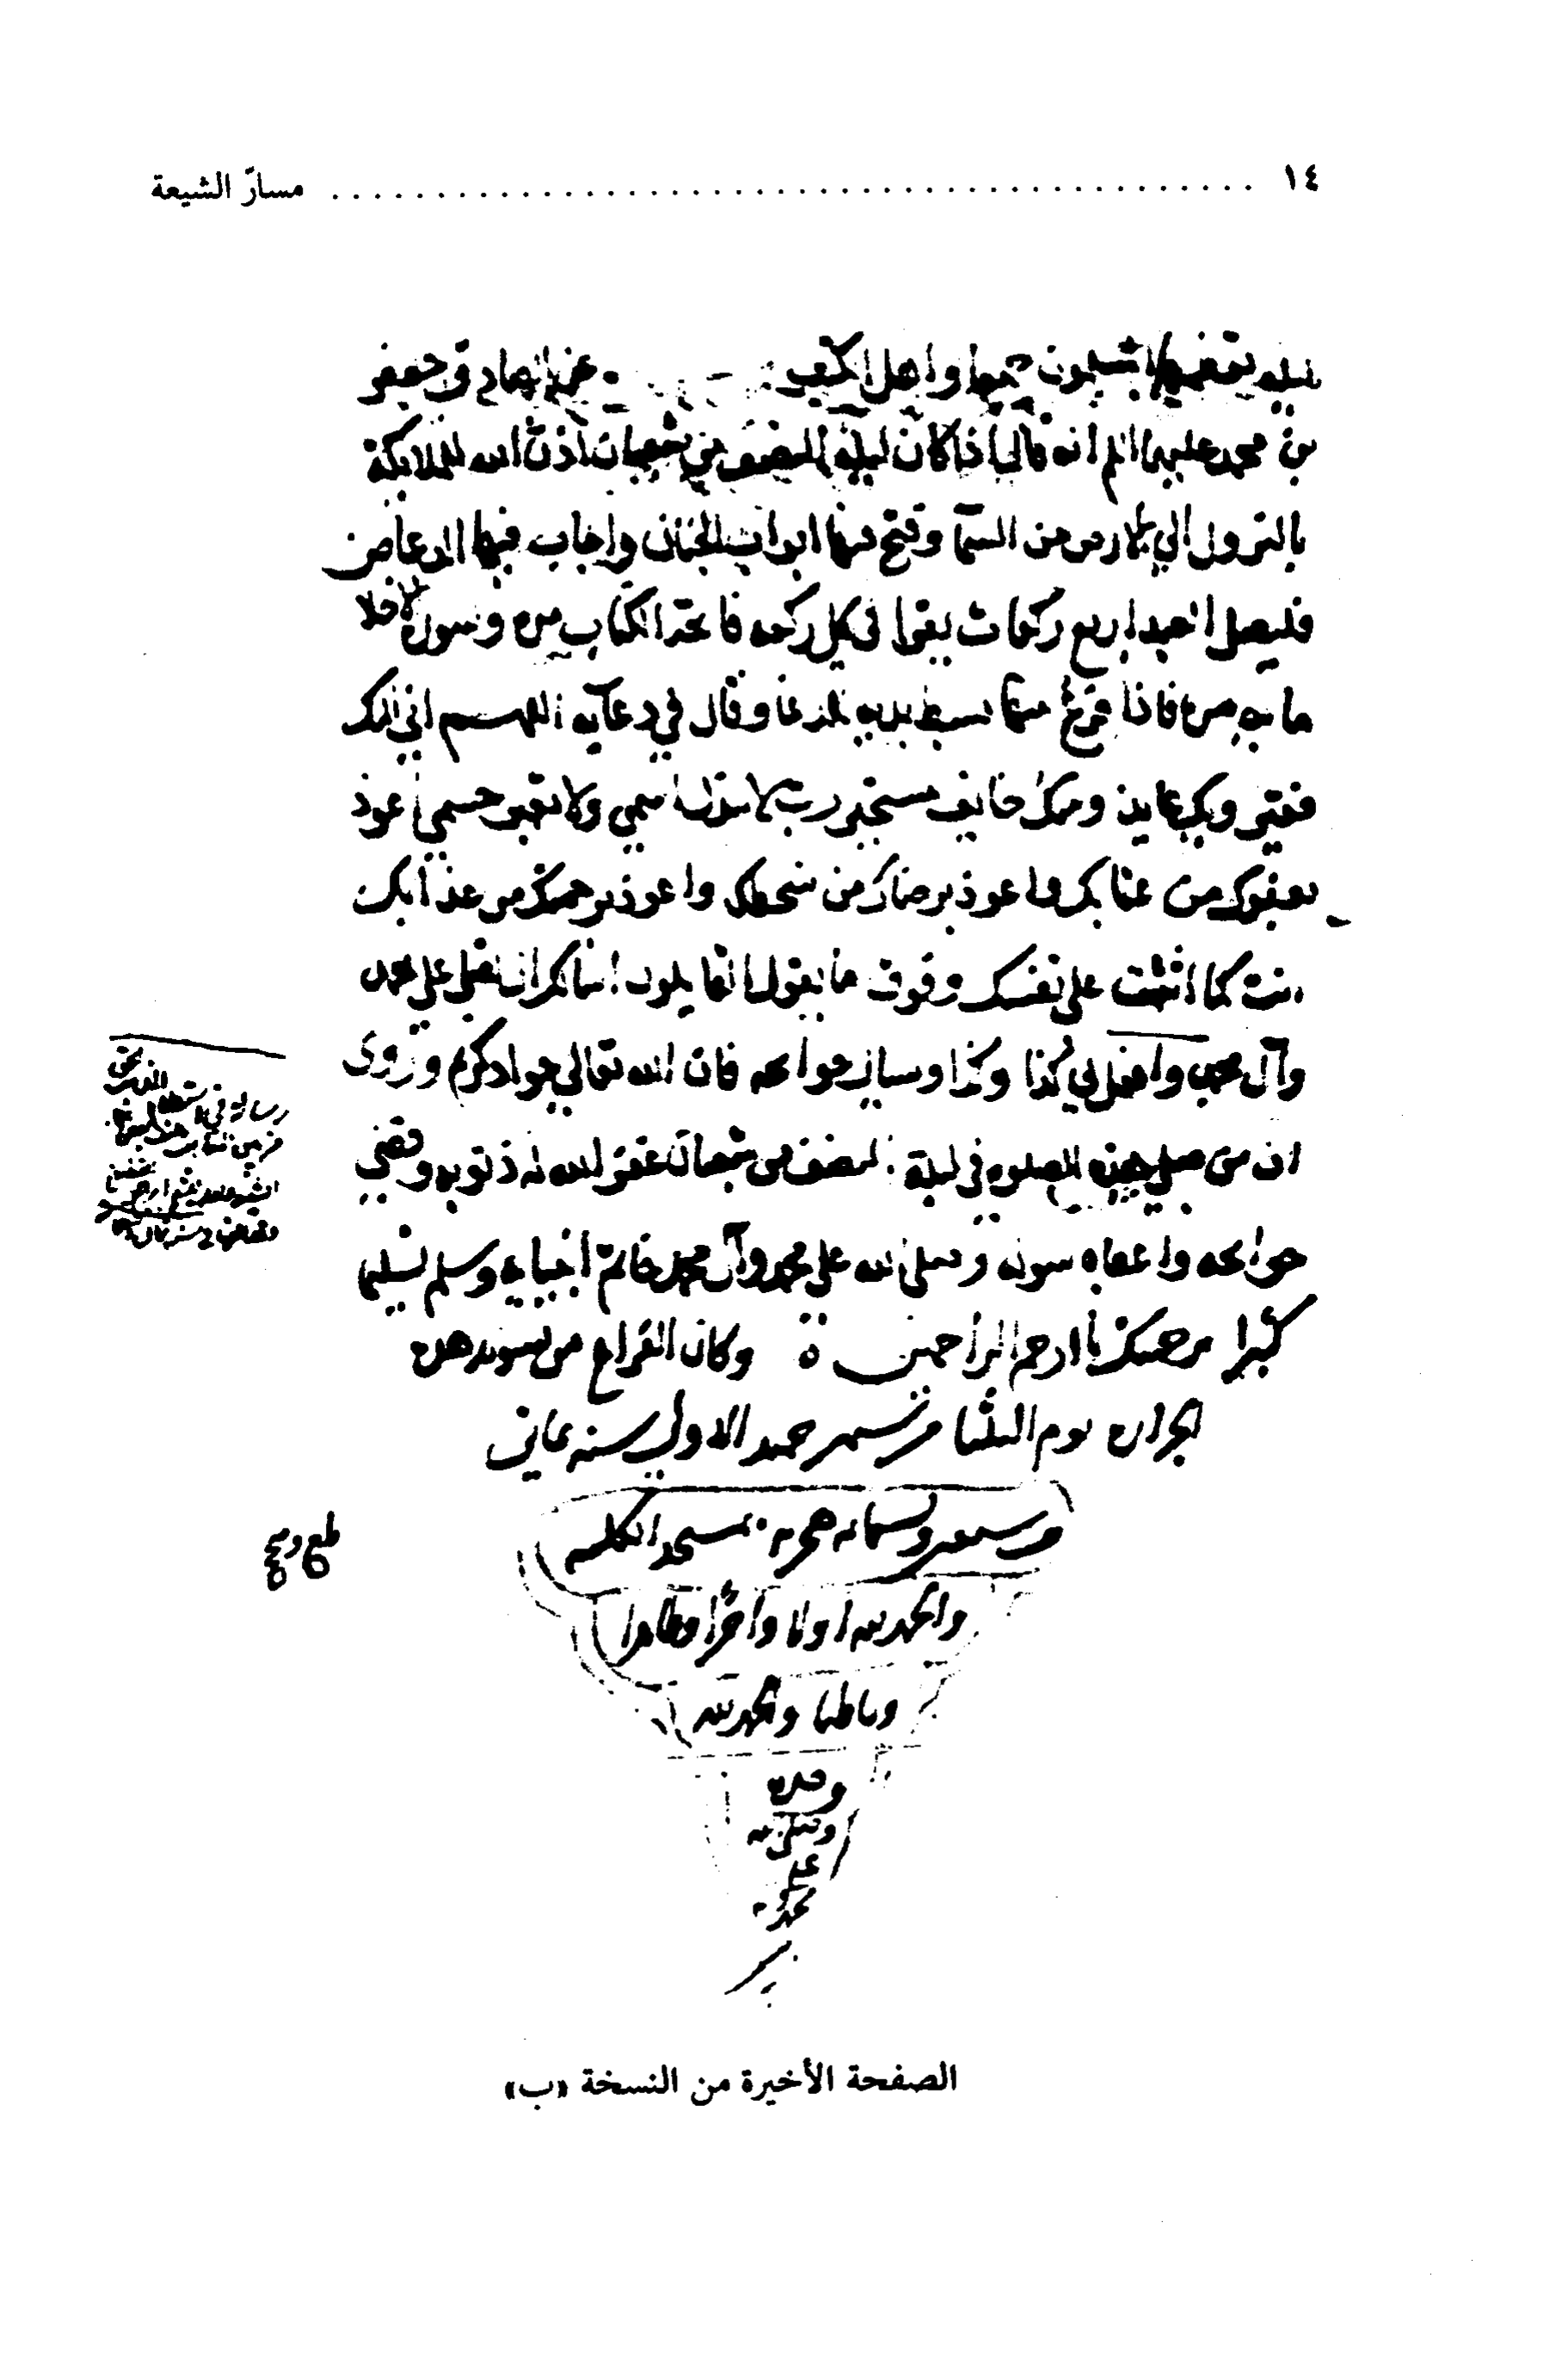 ١٤ ........ مسارّ الشيعة
واهل الكتب عن الصادق جعفر
بن محمد عليهما السلم انه قال اذا كان ليلة النصف من شعبان اذن الله للملايكة
بالنزول الي الارض من السمآ وفتح فيها ابواب الجنان واجاب فيها الدعا
فليصل العبد اربع ركعات يقرا في كل ركعه فاتحة الكتاب مره وسورة الاخلا
مايه مره فاذا فرغ منها بسط يديه للدعا وقال في دعآيه اللهم اني اليك
فقير وبك عايذ ومنك خايف مستجير رب لا تبدل اسمي ولا تغير جسمي اعوذ
بعفوك من عقابك واعوذ برضاك من سخطك واعوذ برحمتك من عذابك
انت كما اثنيت علي نفسك وفوق ما يقول القايلون اسالك ان تصلي علي محمد
وآل محمد وافعل بي كذا وكذا وسال حوايجه فان الله تعالي جواد كريم وروى
ان من صلي هذه الصلوه في ليلة النصف من شعبان غفر الله له ذنوبه وقضي
حوايجه واعطاه سوله وصلي الله علي محمد وآل محمد خاتم انبيايه وسلم تسليما
كثيرا برحمتك يا ارحم الراحمين ه وكان الفراغ من تسويد هذه
يوم الثلثا من شهر جميد الاولي سنه ثماني
هجريه بمسجد
والحمد لله اولا واخرا وظاهرا
وباطنا والحمد لله
وحده
وصلي الله
على
محمد
رساله في
الصفحة الأخيرة من النسخة «ب»